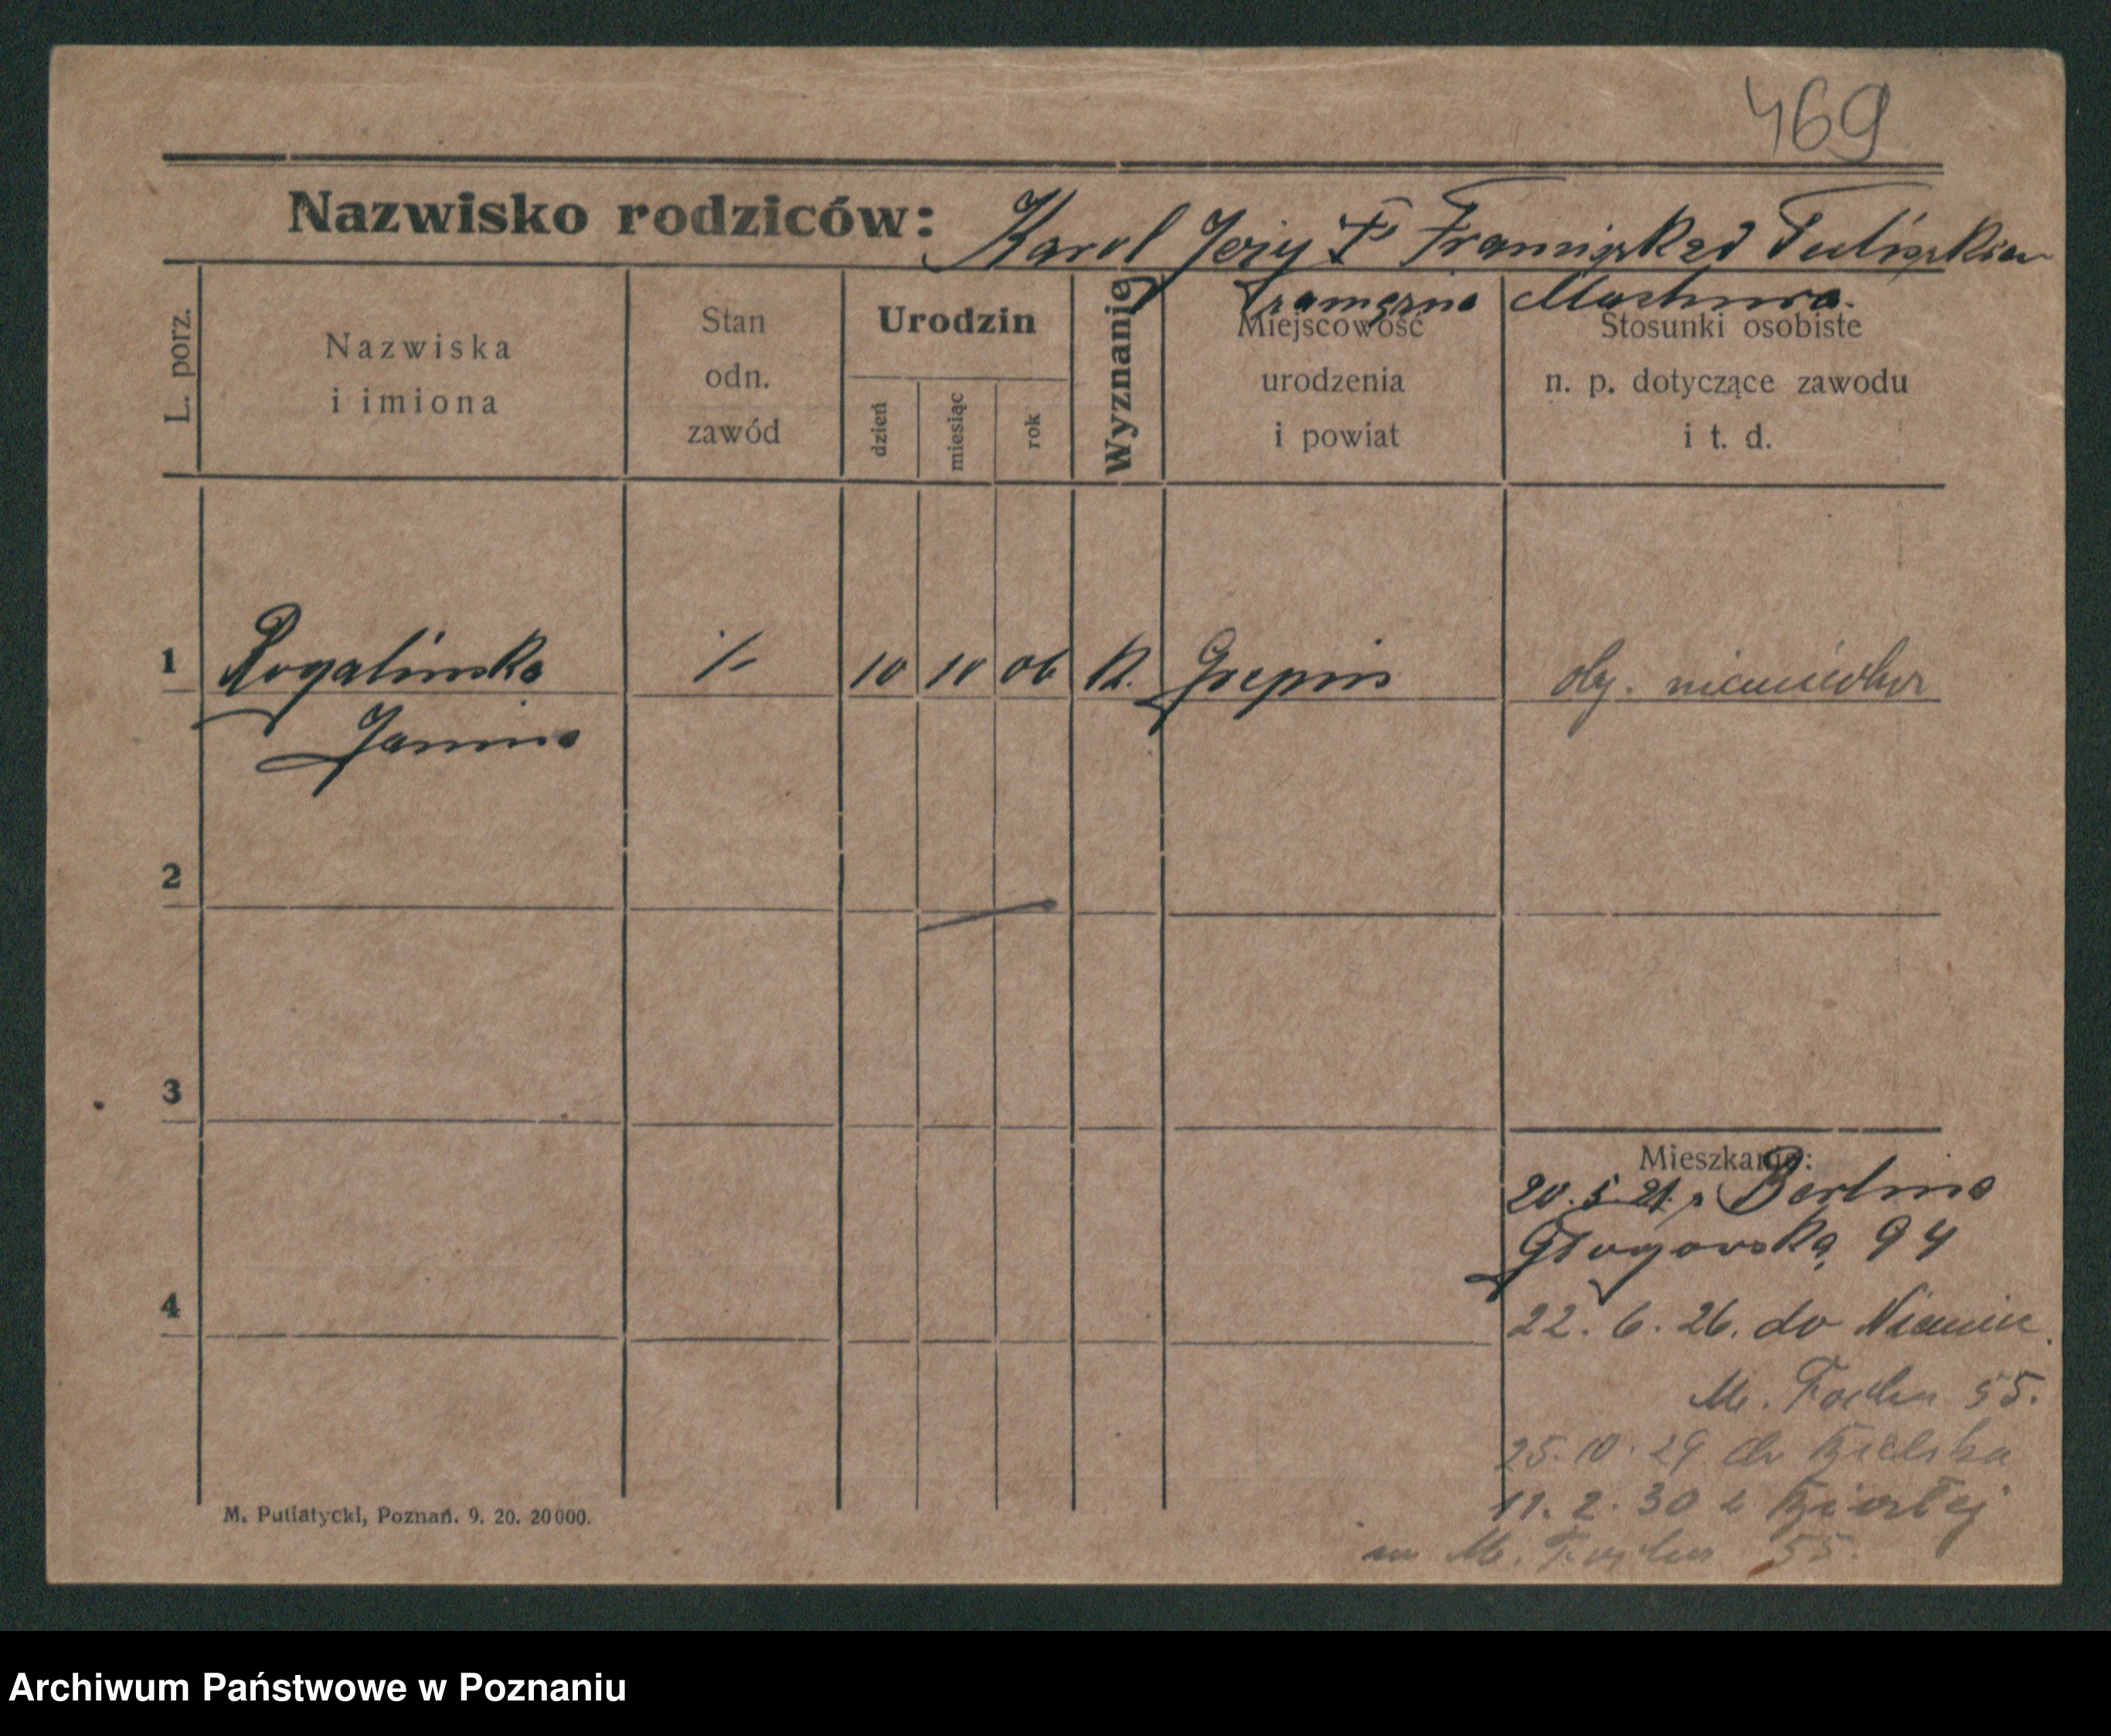 469
Nazwisko rodziców: Karol Jerzy
L. porz.
Nazwiska
i imiona
Stan
odn.
zawód
Urodzin
dzień
miesiąc
rok
Wyznanie
Miejscowość
urodzenia
i powiat
Stosunki osobiste
n. p. dotyczące zawodu
i t. d.
1 Rogalinska 10 10 06 k.
Janina
2
3
4
Mieszkanie:
20. 5. 21. z Berlina
Głogowska 94
22. 6. 26. do Niemiec
M. Focha 55.
25. 10. 29 do Bielska
11. 2. 30 z Białej
M. Focha 55.
M. Putiatycki, Poznań. 9. 20. 20000.
Archiwum Państwowe w Poznaniu